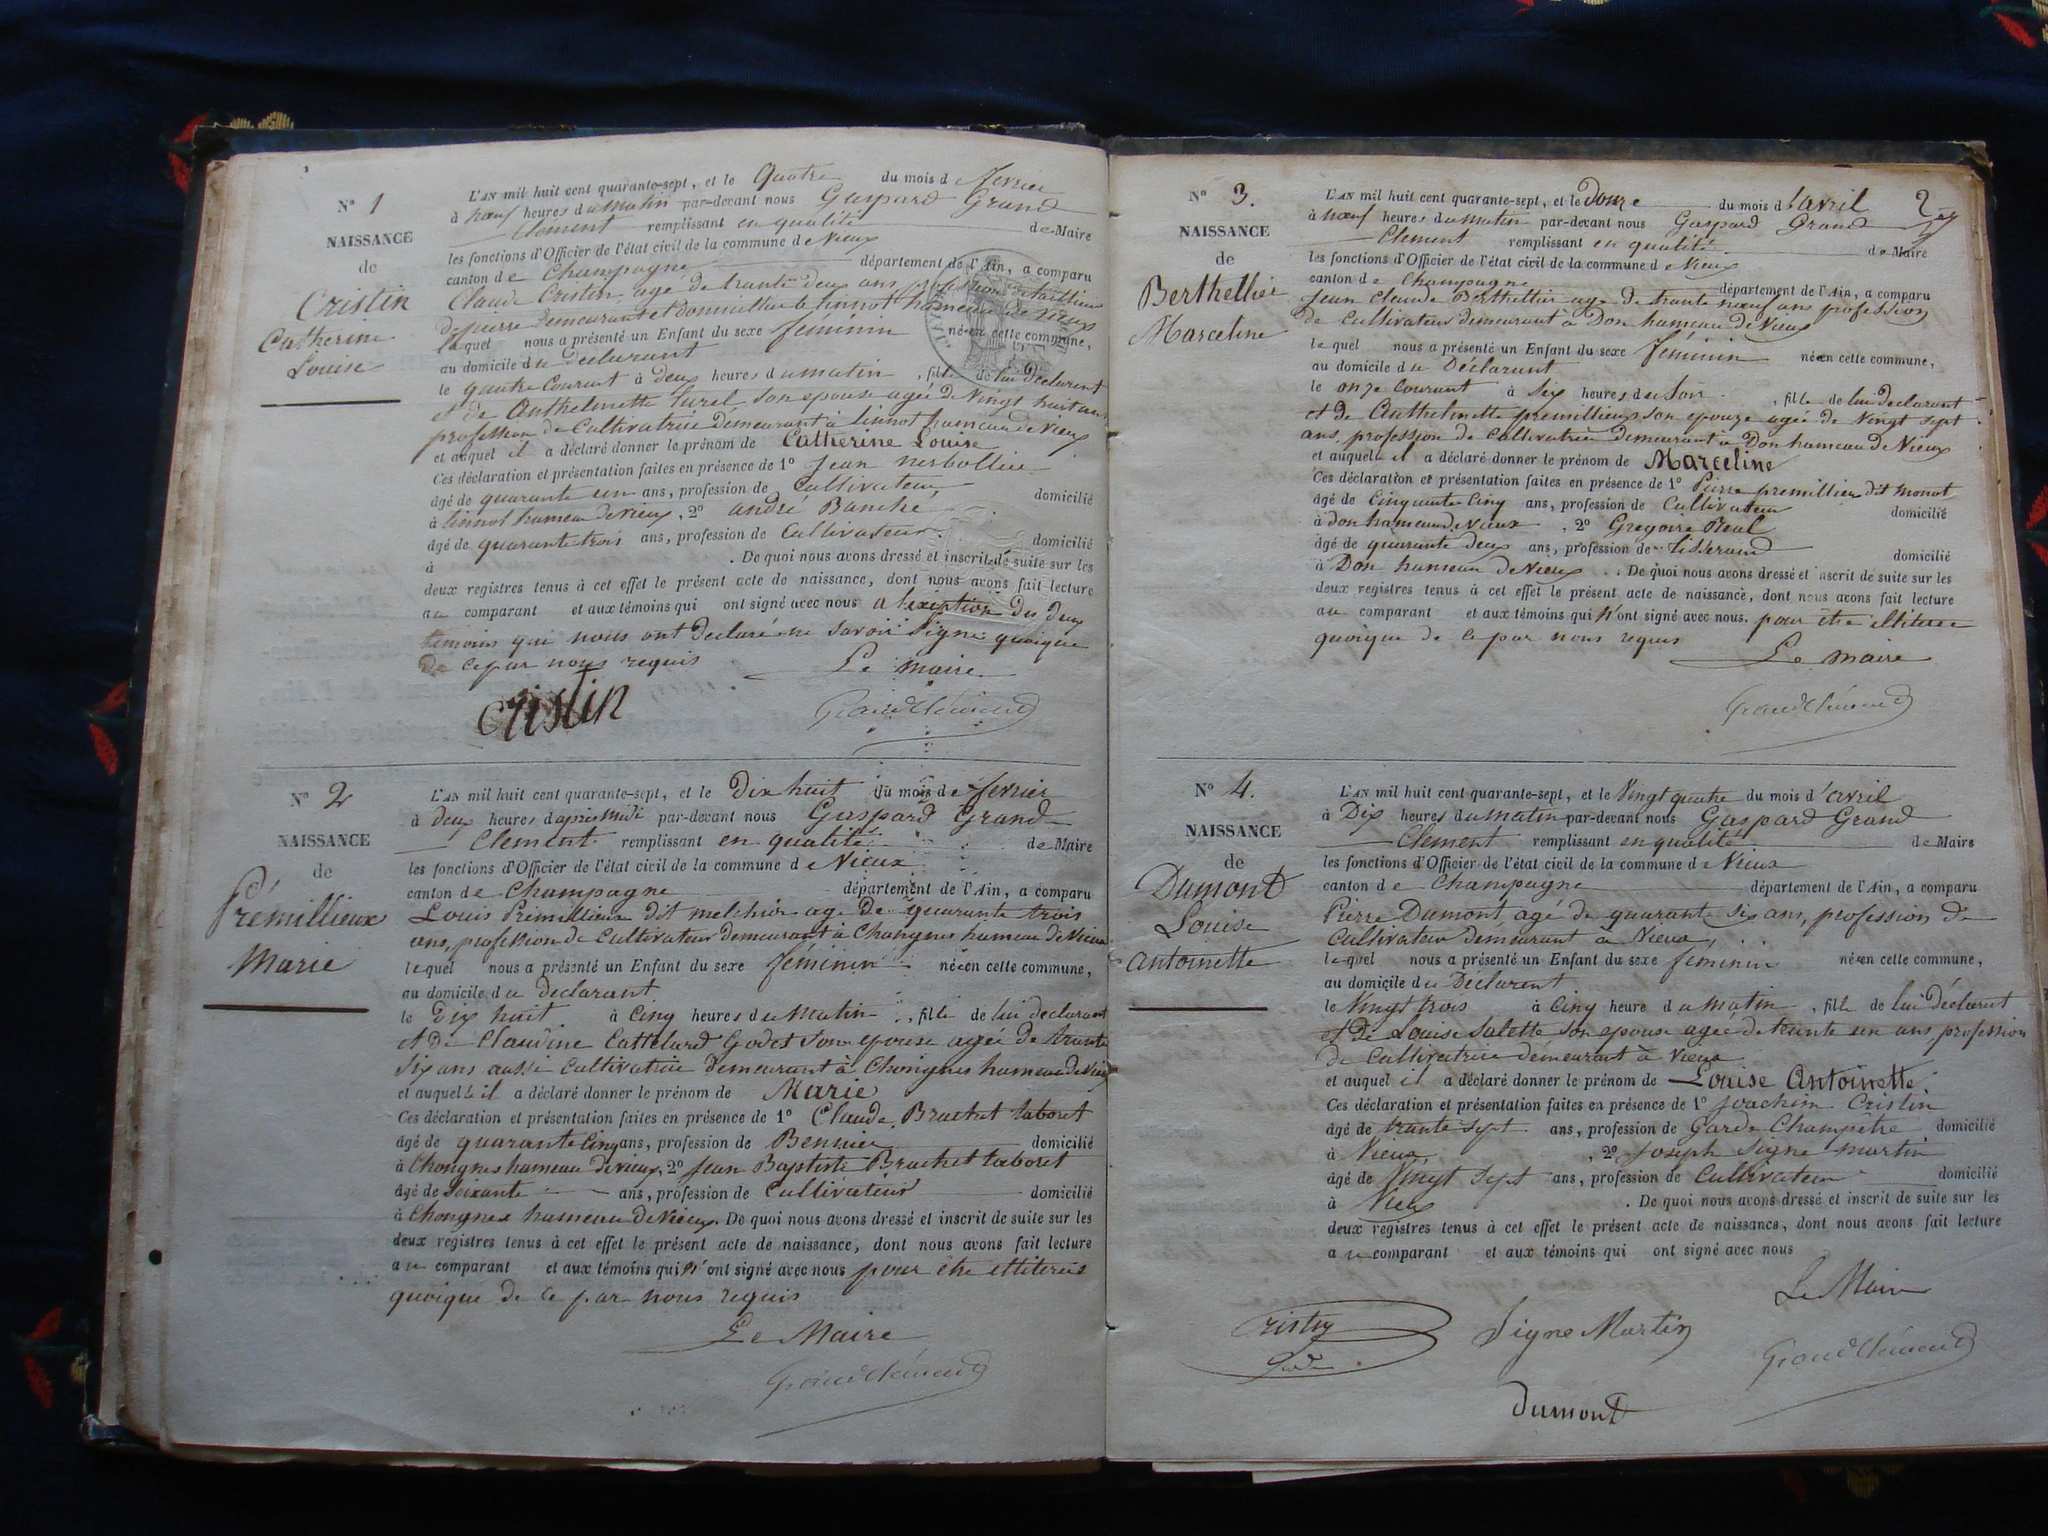 N° 1
NAISSANCE
de
Cristin
Catherine
Louise
L'AN mil huit cent quarante-sept, et le Quatre du mois de fevrier
à neuf heures du matin par-devant nous Gaspard Grand
Clement remplissant en qualité de Maire
les fonctions d'Officier de l'état civil de la commune de Vieux
canton de Champagne département de l'Ain, a comparu
Claude Cristin agé de trante deux ans profession de tailleur
de pierre demeurant et domicillié à linnot hameau de Vieux
lequel nous a présenté un Enfant du sexe féminin né en cette commune,
au domicile du declarant
le quatre Courant à deux heures du matin, fille de lui declarent
et de Anthelmette Surel son epouse agée de Vingt huit ans
profession de Cultivatrice demeurant à linnot hameau de Vieux
et auquel il a déclaré donner le prénom de Catherine Louise
Ces déclaration et présentation faites en présence de 1° Jean
âgé de quarante un ans, profession de Cultivateur domicilié
à linnot hameau de Vieux, 2° andré Banche
âgé de quarante trois ans, profession de Cultivateur domicilié
à . De quoi nous avons dressé et inscrit de suite sur les
deux registres tenus à cet effet le présent acte de naissance, dont nous avons fait lecture
au comparant et aux témoins qui ont signé avec nous a lexeption des deux
témoins qui nous ont declaré ne savoir signé quoique
de ce par nous requis Le maire
Cristin GrandClément
N° 2
NAISSANCE
de
Prémillieux
Marie
L'AN mil huit cent quarante-sept, et le Dix huit du mois de fevrier
à deux heures d'après midi par-devant nous Gaspard Grand
Clement remplissant en qualité de Maire
les fonctions d'Officier de l'état civil de la commune de Vieux
canton de Champagne département de l'Ain, a comparu
Louis Prémillieux dit melchior agé de quarante trois
ans, profession de Cultivateur demeurant à Chongnes hameau de Vieux
lequel nous a présenté un Enfant du sexe féminin né en cette commune,
au domicile du declarant
le Dix huit à Cinq heures du Matin, fille de lui declarant
et de Claudine Cattelard Godet son epouse agée de trante
six ans aussi Cultivatrice demeurant à Chongnes hameau de Vieux
et auquelle il a déclaré donner le prénom de Marie
Ces déclaration et présentation faites en présence de 1° Claude Brachet taboret
âgé de quarante Cinq ans, profession de Bennier domicilié
à Chongnes hameau de Vieux, 2° Jean Baptiste Brachet taboret
âgé de Soixante ans, profession de Cultivateur domicilié
à Chongnes hameau de Vieux. De quoi nous avons dressé et inscrit de suite sur les
deux registres tenus à cet effet le présent acte de naissance, dont nous avons fait lecture
au comparant et aux témoins qui n'ont signé avec nous pour être illiterés
quoique de ce par nous requis
Le Maire
GrandClément
N° 3.
NAISSANCE
de
Berthellier
Marceline
L'AN mil huit cent quarante-sept, et le Douze du mois d'avril
à neuf heures du matin par-devant nous Gaspard Grand
Clement remplissant en qualité de Maire
les fonctions d'Officier de l'état civil de la commune de Vieux
canton de Champagne département de l'Ain, a comparu
Jean Claude Berthellier agé de trante neuf ans profession
de Cultivateur demeurant à Don hameau de Vieux
lequel nous a présenté un Enfant du sexe féminin né en cette commune,
au domicile du Déclarant
le onze Courant à six heures du soir, fille de lui declarant
et de Anthelmette premillieux son epouze agée de Vingt sept
ans, profession de Cultivatrice demeurant à Don hameau de Vieux
et auquelle il a déclaré donner le prénom de Marceline
Ces déclaration et présentation faites en présence de 1° Pierre premillieu dit monot
âgé de Cinquante Cinq ans, profession de Cultivateur domicilié
à don hameau de Vieux, 2° Gregoire Réal
âgé de quarante deux ans, profession de tisserand domicilié
à Don hameau de Vieux. De quoi nous avons dressé et inscrit de suite sur les
deux registres tenus à cet effet le présent acte de naissance, dont nous avons fait lecture
au comparant et aux témoins qui n'ont signé avec nous. pour être illiteré
quoique de ce par nous requis
Le maire
GrandClément
N° 4.
NAISSANCE
de
Dumont
Louise
Antoinette
L'AN mil huit cent quarante-sept, et le Vingt quatre du mois d'avril
à Dix heures du matin par-devant nous Gaspard Grand
Clement remplissant en qualité de Maire
les fonctions d'Officier de l'état civil de la commune de Vieux
canton de Champagne département de l'Ain, a comparu
Pierre Dumont agé de quarante six ans, profession de
Cultivateur demeurant à Vieux,
lequel nous a présenté un Enfant du sexe féminin né en cette commune,
au domicile du Déclarent
le Vingt trois à Cinq heure du matin, fille de lui déclarent
et de Louise Salette son epouse agée de trante un ans, profession
de Cultivatrice démeurant à Vieux
et auquel il a déclaré donner le prénom de Louise Antoinette.
Ces déclaration et présentation faites en présence de 1° Joachim Cristin
âgé de trante sept ans, profession de Garde Champêtre domicilié
à Vieux, 2° Joseph Signe martin
âgé de Vingt sept ans, profession de Cultivateur domicilié
à Vieux . De quoi nous avons dressé et inscrit de suite sur les
deux registres tenus à cet effet le présent acte de naissance, dont nous avons fait lecture
au comparant et aux témoins qui ont signé avec nous
Le Maire
Cristin Signe Martin GrandClément
dumont